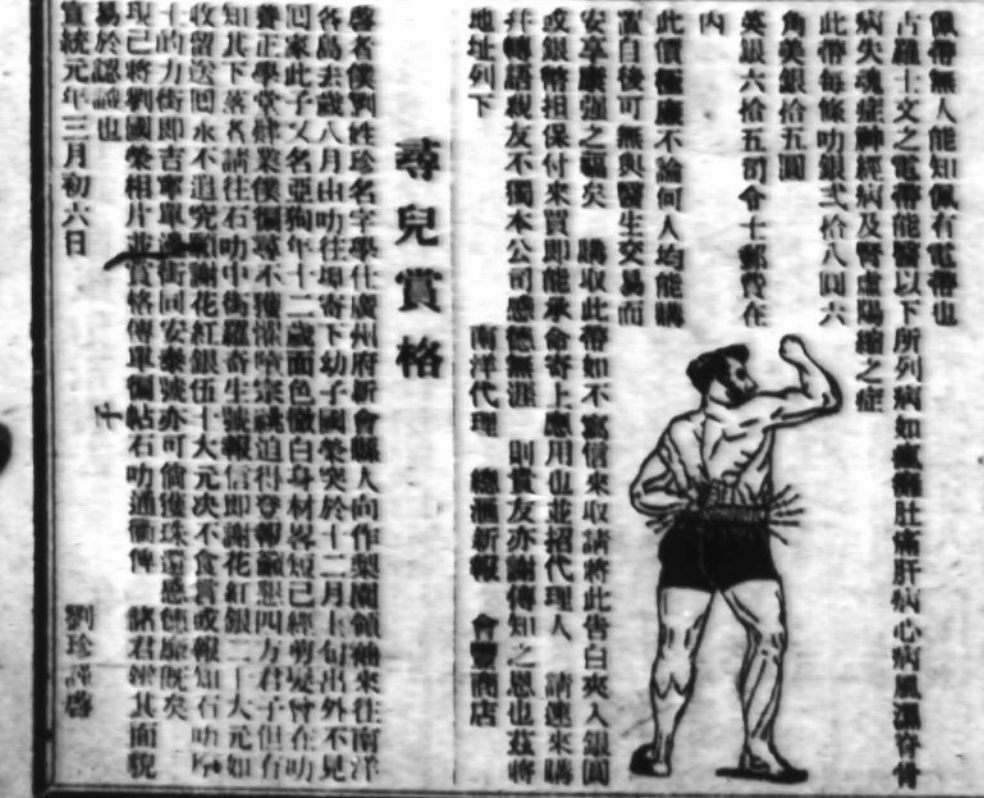 佩帶無人能知佩有電帶也
古羅士文之電帶能醫以下所列病如瘋癱肚痛肝病心病風濕脊骨
病失魂症神經病及腎虛陽縮之症
此帶每條叻銀弍拾八圓六
角美銀拾五圓
英銀六拾五司令士郵費在
內
此價極廉不論何人均能購
置自後可無與醫生交易而
安享康强之福矣 購取此帶如不寫信來取請將此告白夾入銀圓
或銀幣担保付來買即能承命寄上應用也並招代理人 請速來購
幷轉語親友不獨本公司感德無涯 則貴友亦謝傳知之恩也茲將
地址列下 南洋代理 總滙新報 會豐商店
尋兒賞格
啓者僕劉姓珍名字學仕廣州府新會縣人向作梨園領袖來往南洋
各島去歲八月由叻往埠寄下幼子國榮突於十二月上旬出外不見
回家此子乂名亞狗年十二歲面色徵白身材畧短已經剪髮曾在叻
養正學堂肄業僕徧尋不獲懼喰宗祧迫得登報籲懇四方君子但有
知其下落者請往石叻中街羅奇生號報信即謝花紅銀二十大元如
收留送回永不追究願謝花紅銀伍十大元决不食言或報知石叻
十的力街即吉寧單邊街同安泰號亦可倘獲珠還感德靡既矣
現已將劉國榮相片並賞格傳單徧帖石叻通衢俾 諸君辨其面貌
易於認識也
宣統元年三月初六日 劉珍謹啓